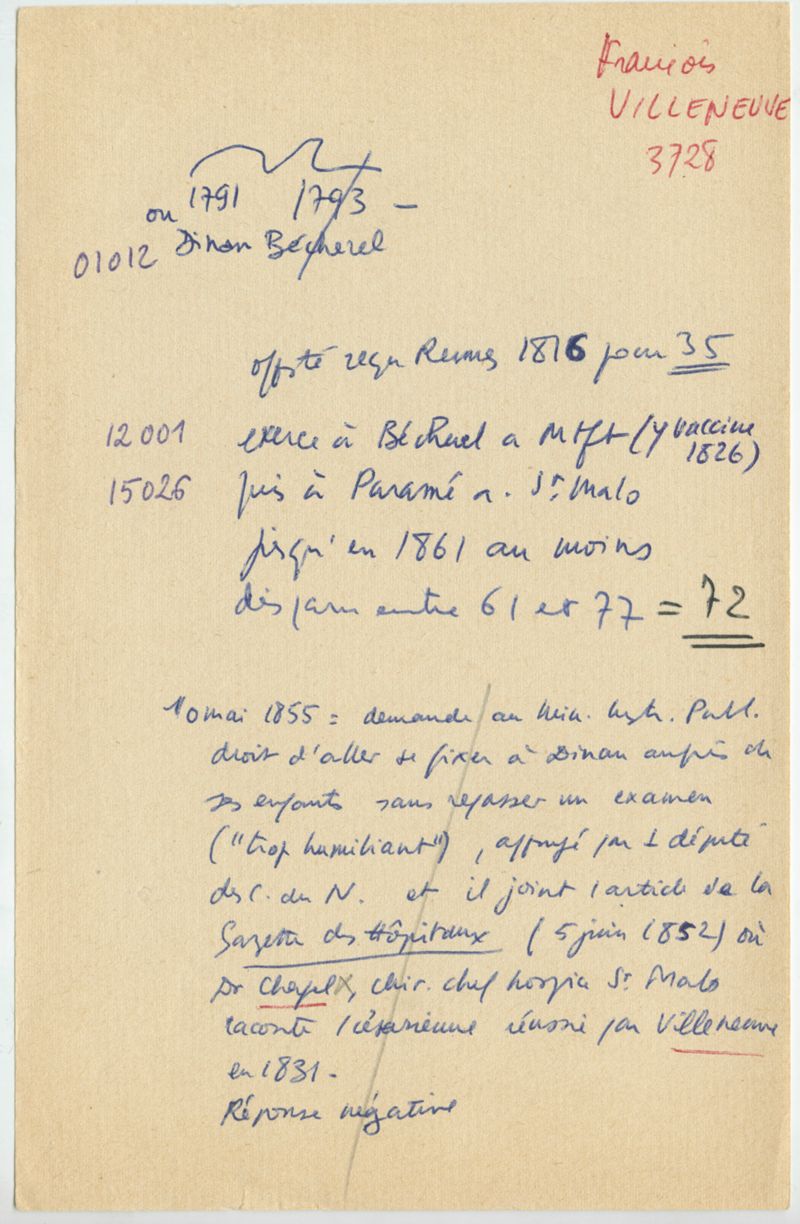 François
VILLENEUVE
3728
ou 1791 1793 –
01012 Dinan Bécherel
offté reçu Rennes 1816 pour 35
12001 exerce à Bécherel a Mtft (y vaccine 1826)
15026 puis à Paramé a. St Malo
jusqu'en 1861 au moins
disparu entre 61 et 77 = 72
10 mai 1855 = demande au Min. Instr. Publ.
droit d'aller se fixer à Dinan auprès de
ses enfants sans repasser un examen
("trop humiliant"), appuyé par 1 député
des C. du N. et il joint l'article de la
Gazette des Hôpitaux (5 juin 1852) où
Dr Chapel, chir. chef hospice St Malo
raconte 1 césarienne réussie par Villeneuve
en 1831 -
Réponse négative